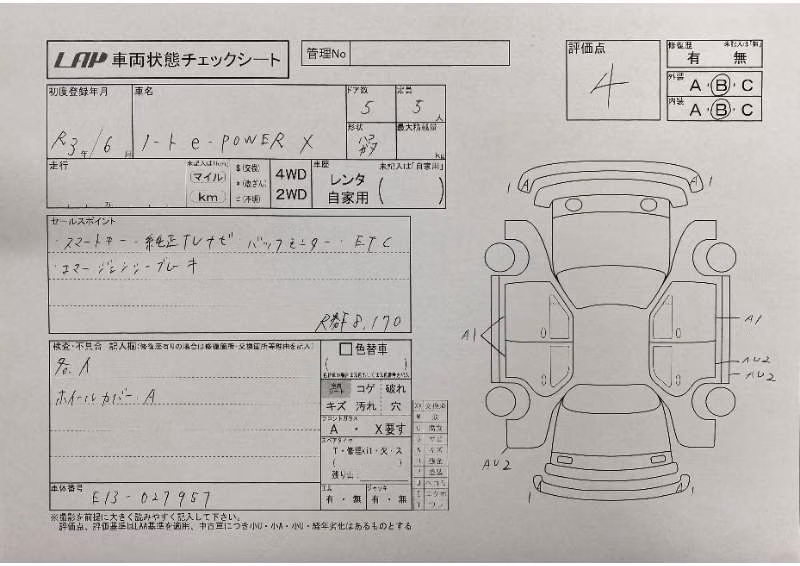 LAP 車両状態チェックシート
管理No
評価点
4
修復歴
有 無
外装 A・B・C
内装 A・B・C
初度登録年月
R3年/6月
車名
ノート e-POWER X
ドア数
5
定員
5人
形状
ハコ
ガタ
最大積載量
kg
走行
マイル
km
$(交換)
*(改ざん)
4WD
2WD
車歴
未記入は「自家用」
レンタ
自家用
セールスポイント
・スマートキー・純正TVナビ バックモニター・ETC
・エマージェンシーブレーキ
R券 8,170
検査・不具合 記入欄
各A
ホイールカバー A
色替車
コゲ 破れ
キズ 汚れ 穴
フロントガラス
A ・ X要す
スペアタイヤ
残り山
有・無
ジャッキ
有・無
車体番号
E13-027957
※撮影を前提に大きく読みやすく記入して下さい。
A1
A1
A1
A1
AU2
AU2
AU2
A1
A1